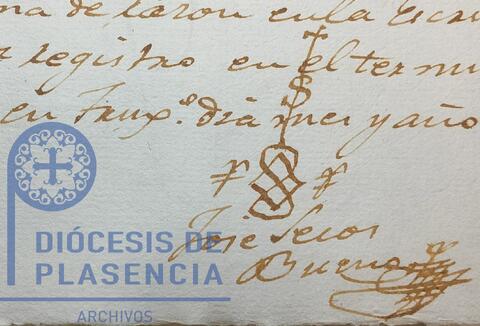 de razon en la escri
registro en el termi
en Trux.º dia mes y año
José Secos
Bueno
DIÓCESIS DE
PLASENCIA
ARCHIVOS